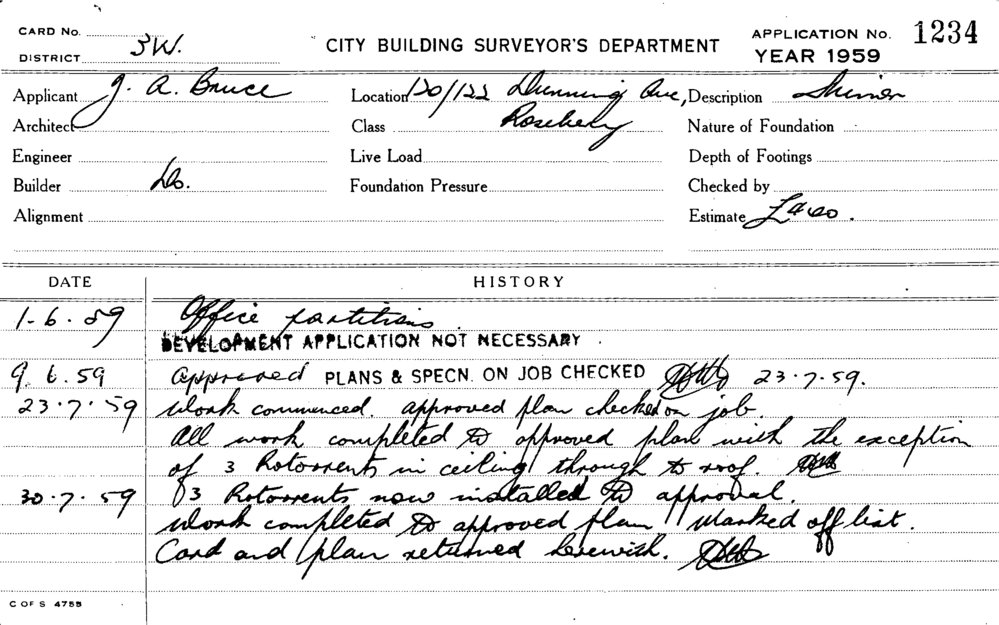 CARD No.
DISTRICT 3W.
CITY BUILDING SURVEYOR'S DEPARTMENT
APPLICATION No. 1234
YEAR 1959
Applicant J. A. Bruce Location 120/122 Dunning Ave, Description Minor
Architect Class Rosebery Nature of Foundation
Engineer Live Load Depth of Footings
Builder Do. Foundation Pressure Checked by
Alignment Estimate
DATE HISTORY
1-6-59 Office partitions
DEVELOPMENT APPLICATION NOT NECESSARY.
9.6.59 Approved PLANS & SPECN. ON JOB CHECKED 23.7.59.
23.7.59 Work commenced. Approved plan checked on job.
All work completed to approved plan with the exception
of 3 Rotorvents in ceiling through to roof.
30.7.59 3 Rotorvents now installed to approval.
Work completed to approved plan. Marked off list.
Card and plan returned herewith.
C OF S 4755